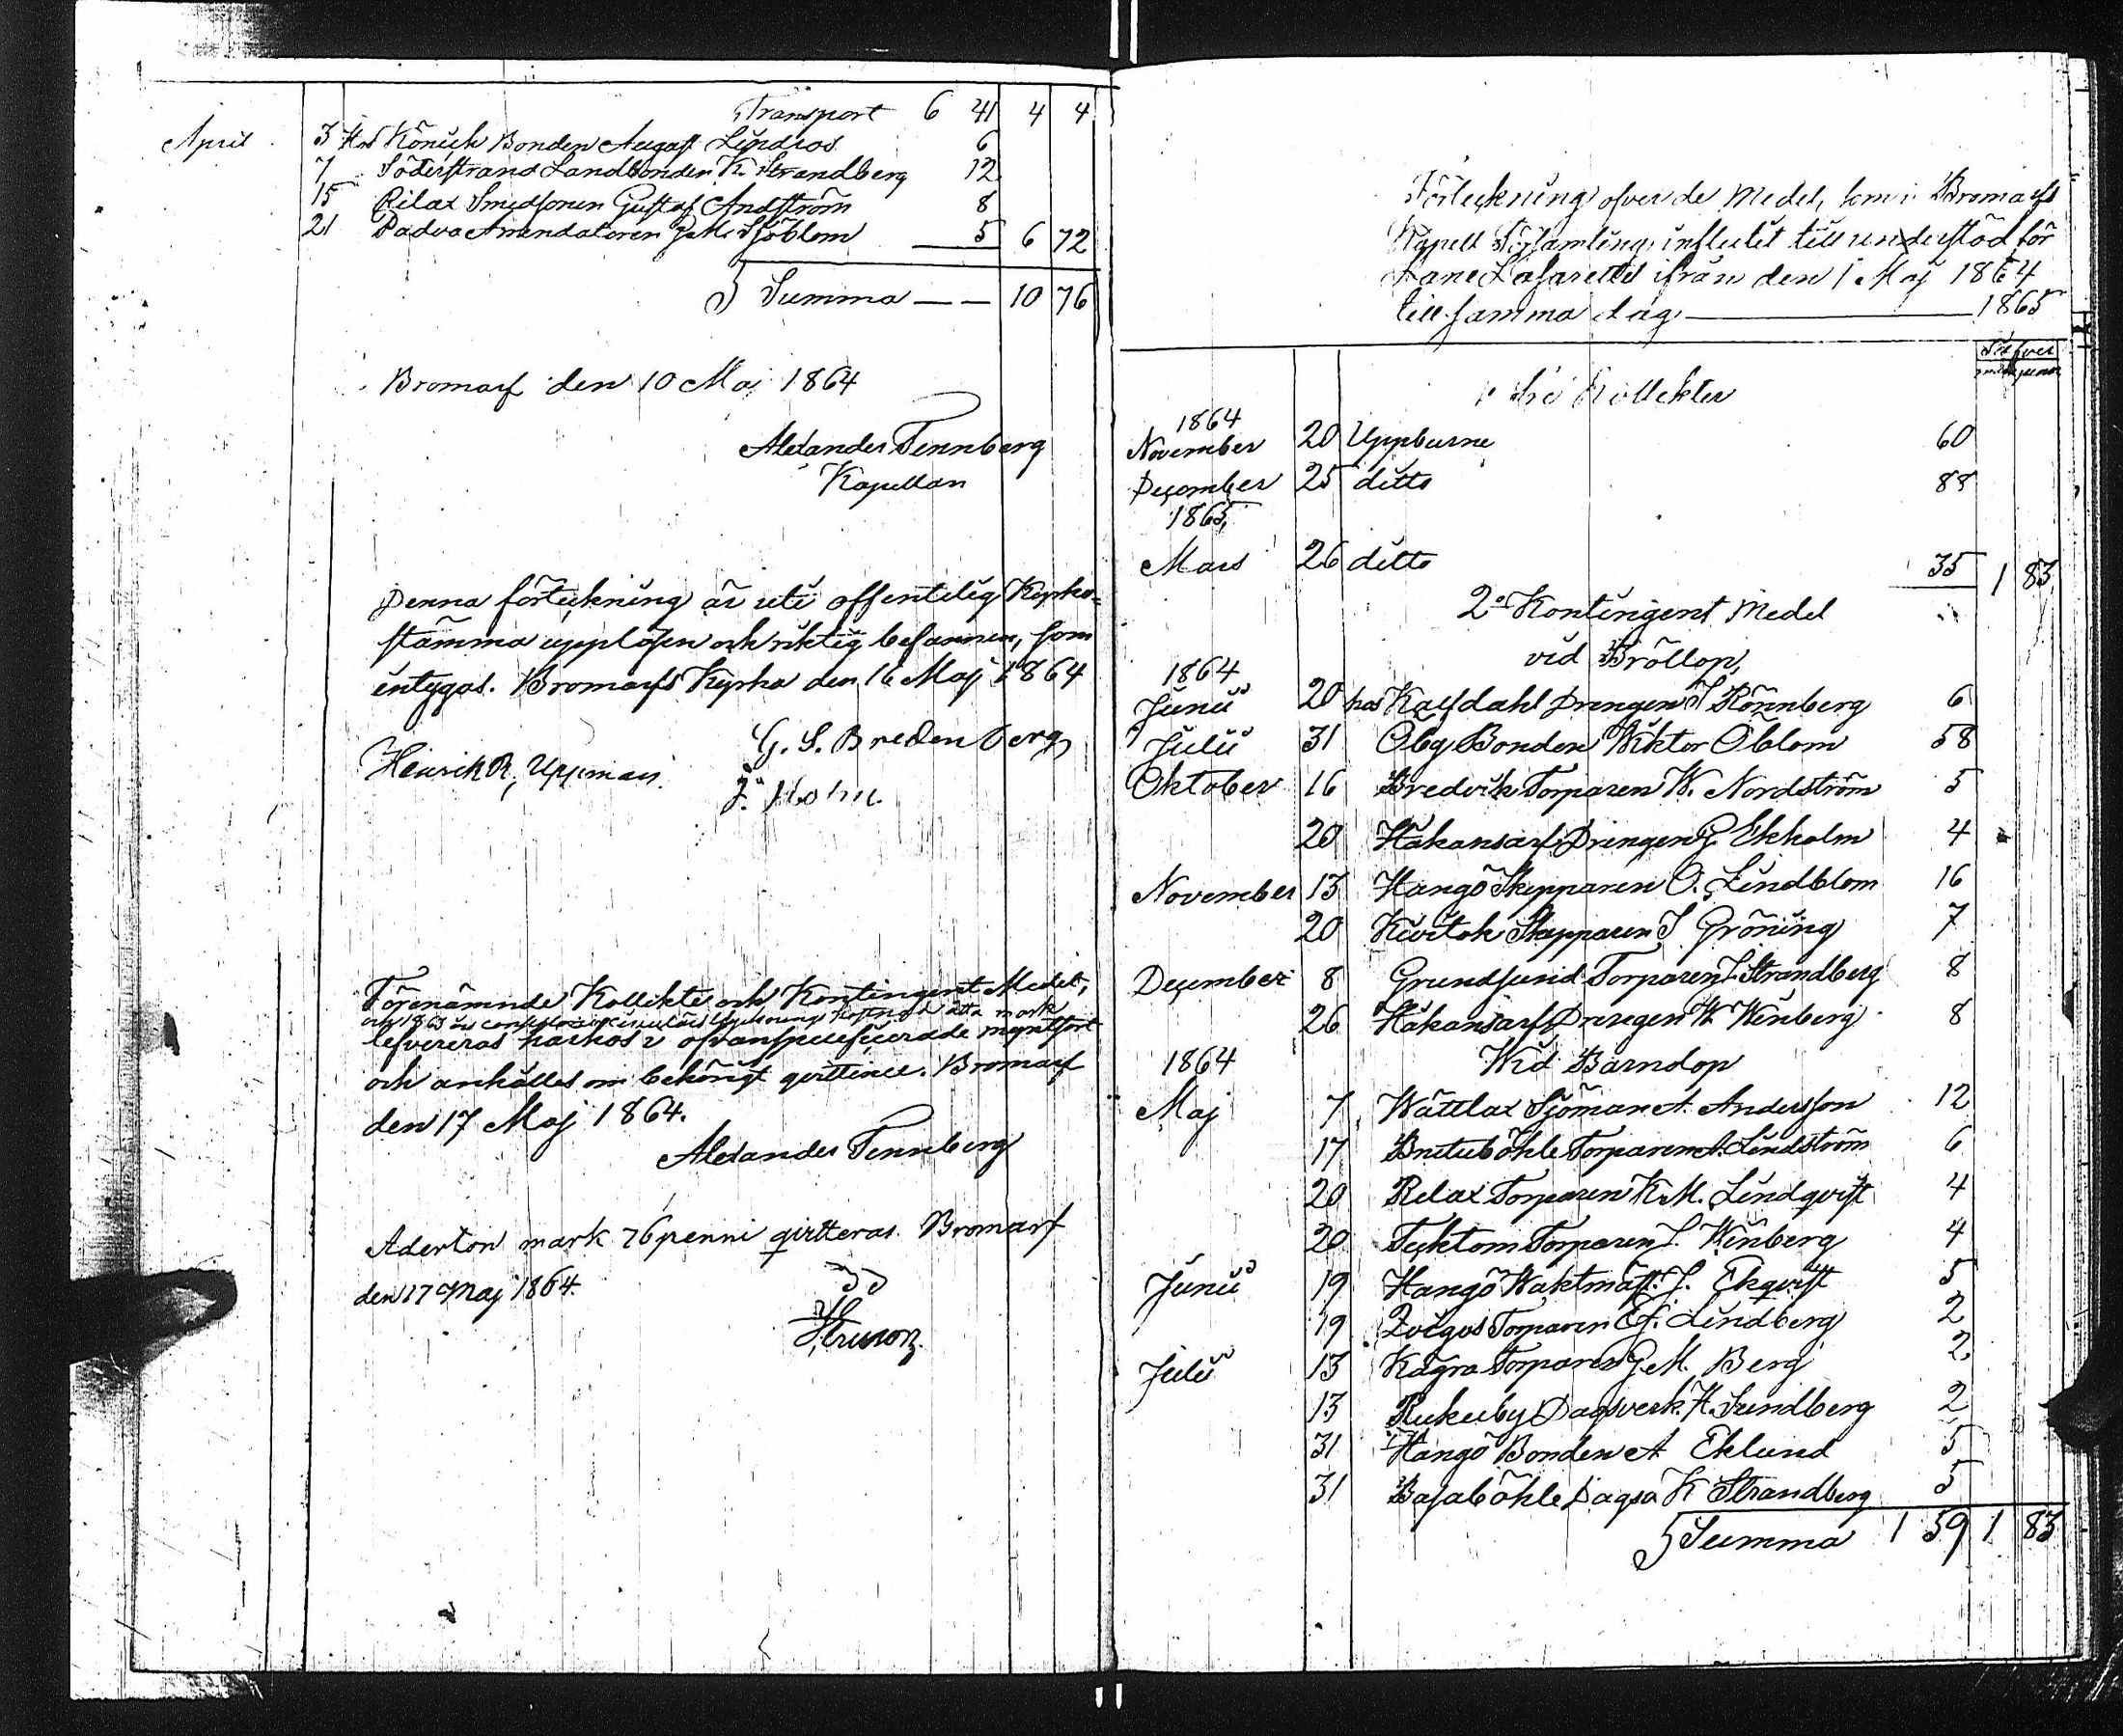 Transport 6 41 4 4
April 3 Hos Könick Bonden August Lindros 6
7 Söderstrand Landbonden K. Strandberg 12
15 Rilax Smedsonen Gustaf Andström 8
21 Padva Arrendatoren G. M. Sjöblom 5 6 72
Summa — — 10 76
Bromarf den 10 Maj 1864
Alexander Tennberg
Kapellan
Denna förteckning är uti offentelig Kyrko-
stämma uppläsen och riktig befannen, som
intygas. Bromarfs Kyrka den 16 Maj 1864
G. S. Bredenberg
Henrik R, Uppman.
J. Holm.
Förenämnde Kollekte och Kontingent Medel,
och 1863 års åtta mark
lefvereras härhos i ofvanspecificerade myntsort
och anhålles om behörigt quittence. Bromarf
den 17 Maj 1864.
Alexander Tennberg
Aderton mark 76 penni qvitteras. Bromarf
den 17 Maj 1864.
Förteckning öfver de Medel, som i Bromarfs
Kapell Församling influtit till understöd för
Läne Lasarettet ifrån den 1 Maj 1864
till samma dag — 1865
Silfver
Kollekter
1864
November 20 Uppburne 60
December 25 ditto 88
1865
Mars 26 ditto 35 1 83
2o Kontingent Medel
vid Bröllop,
1864
Junii 20 hos Kalfdahl Drengen J Rönnberg 6
Julii 31 Öby Bonden Wiktor Öblom 58
Oktober 16 Bredvik Torparen W. Nordström 5
20 Håkansarf Drengen G. Ekholm 4
November 13 Hangö Skepparen O. Lindblom 16
20 Kivitok Skepparen J Gröning 7
December 8 Grundsund Torparen J. Strandberg 8
26 Håkansarf Drengen W. Winberg 8
1864 Wid Barndop
Maj 7 Wättlax Sjöman A. Andersson 12
17 Torparen A. Lindström 6
20 Rilax Torparen K. M. Lindqvist 4
20 Tecktom Torparen J. Winberg 4
Junii 19 Hangö Waktmäst. J. Ekqvist 5
19 Torparen E. J. Lindberg 2
Julii 13 Kagra Torparen G. M. Berg 2
13 Rukuby Dagsverk. H. Sundberg 2
31 Hangö Bonden A Eklund 5
31 Basaböhle Dagsv K Strandberg 5
Summa 1 59 1 83